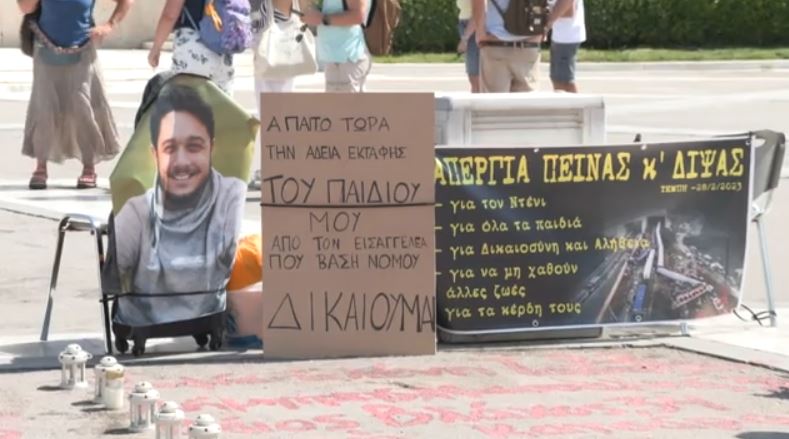 ΑΠΑΙΤΩ ΤΩΡΑ
ΤΗΝ ΑΔΕΙΑ ΕΚΤΑΦΗΣ
ΤΟΥ ΠΑΙΔΙΟΥ
ΜΟΥ
ΑΠΟ ΤΟΝ ΕΙΣΑΓΓΕΛΕΑ
ΠΟΥ ΒΑΣΗ ΝΟΜΟΥ
ΔΙΚΑΙΟΥΜΑΙ
ΑΠΕΡΓΙΑ ΠΕΙΝΑΣ κ' ΔΙΨΑΣ
ΤΕΜΠΗ -28/2/2023
- για τον Ντένι
- για όλα τα παιδιά
- για Δικαιοσύνη και Αλήθεια
- για να μη χαθούν
άλλες ζωές
για τα κέρδη τους